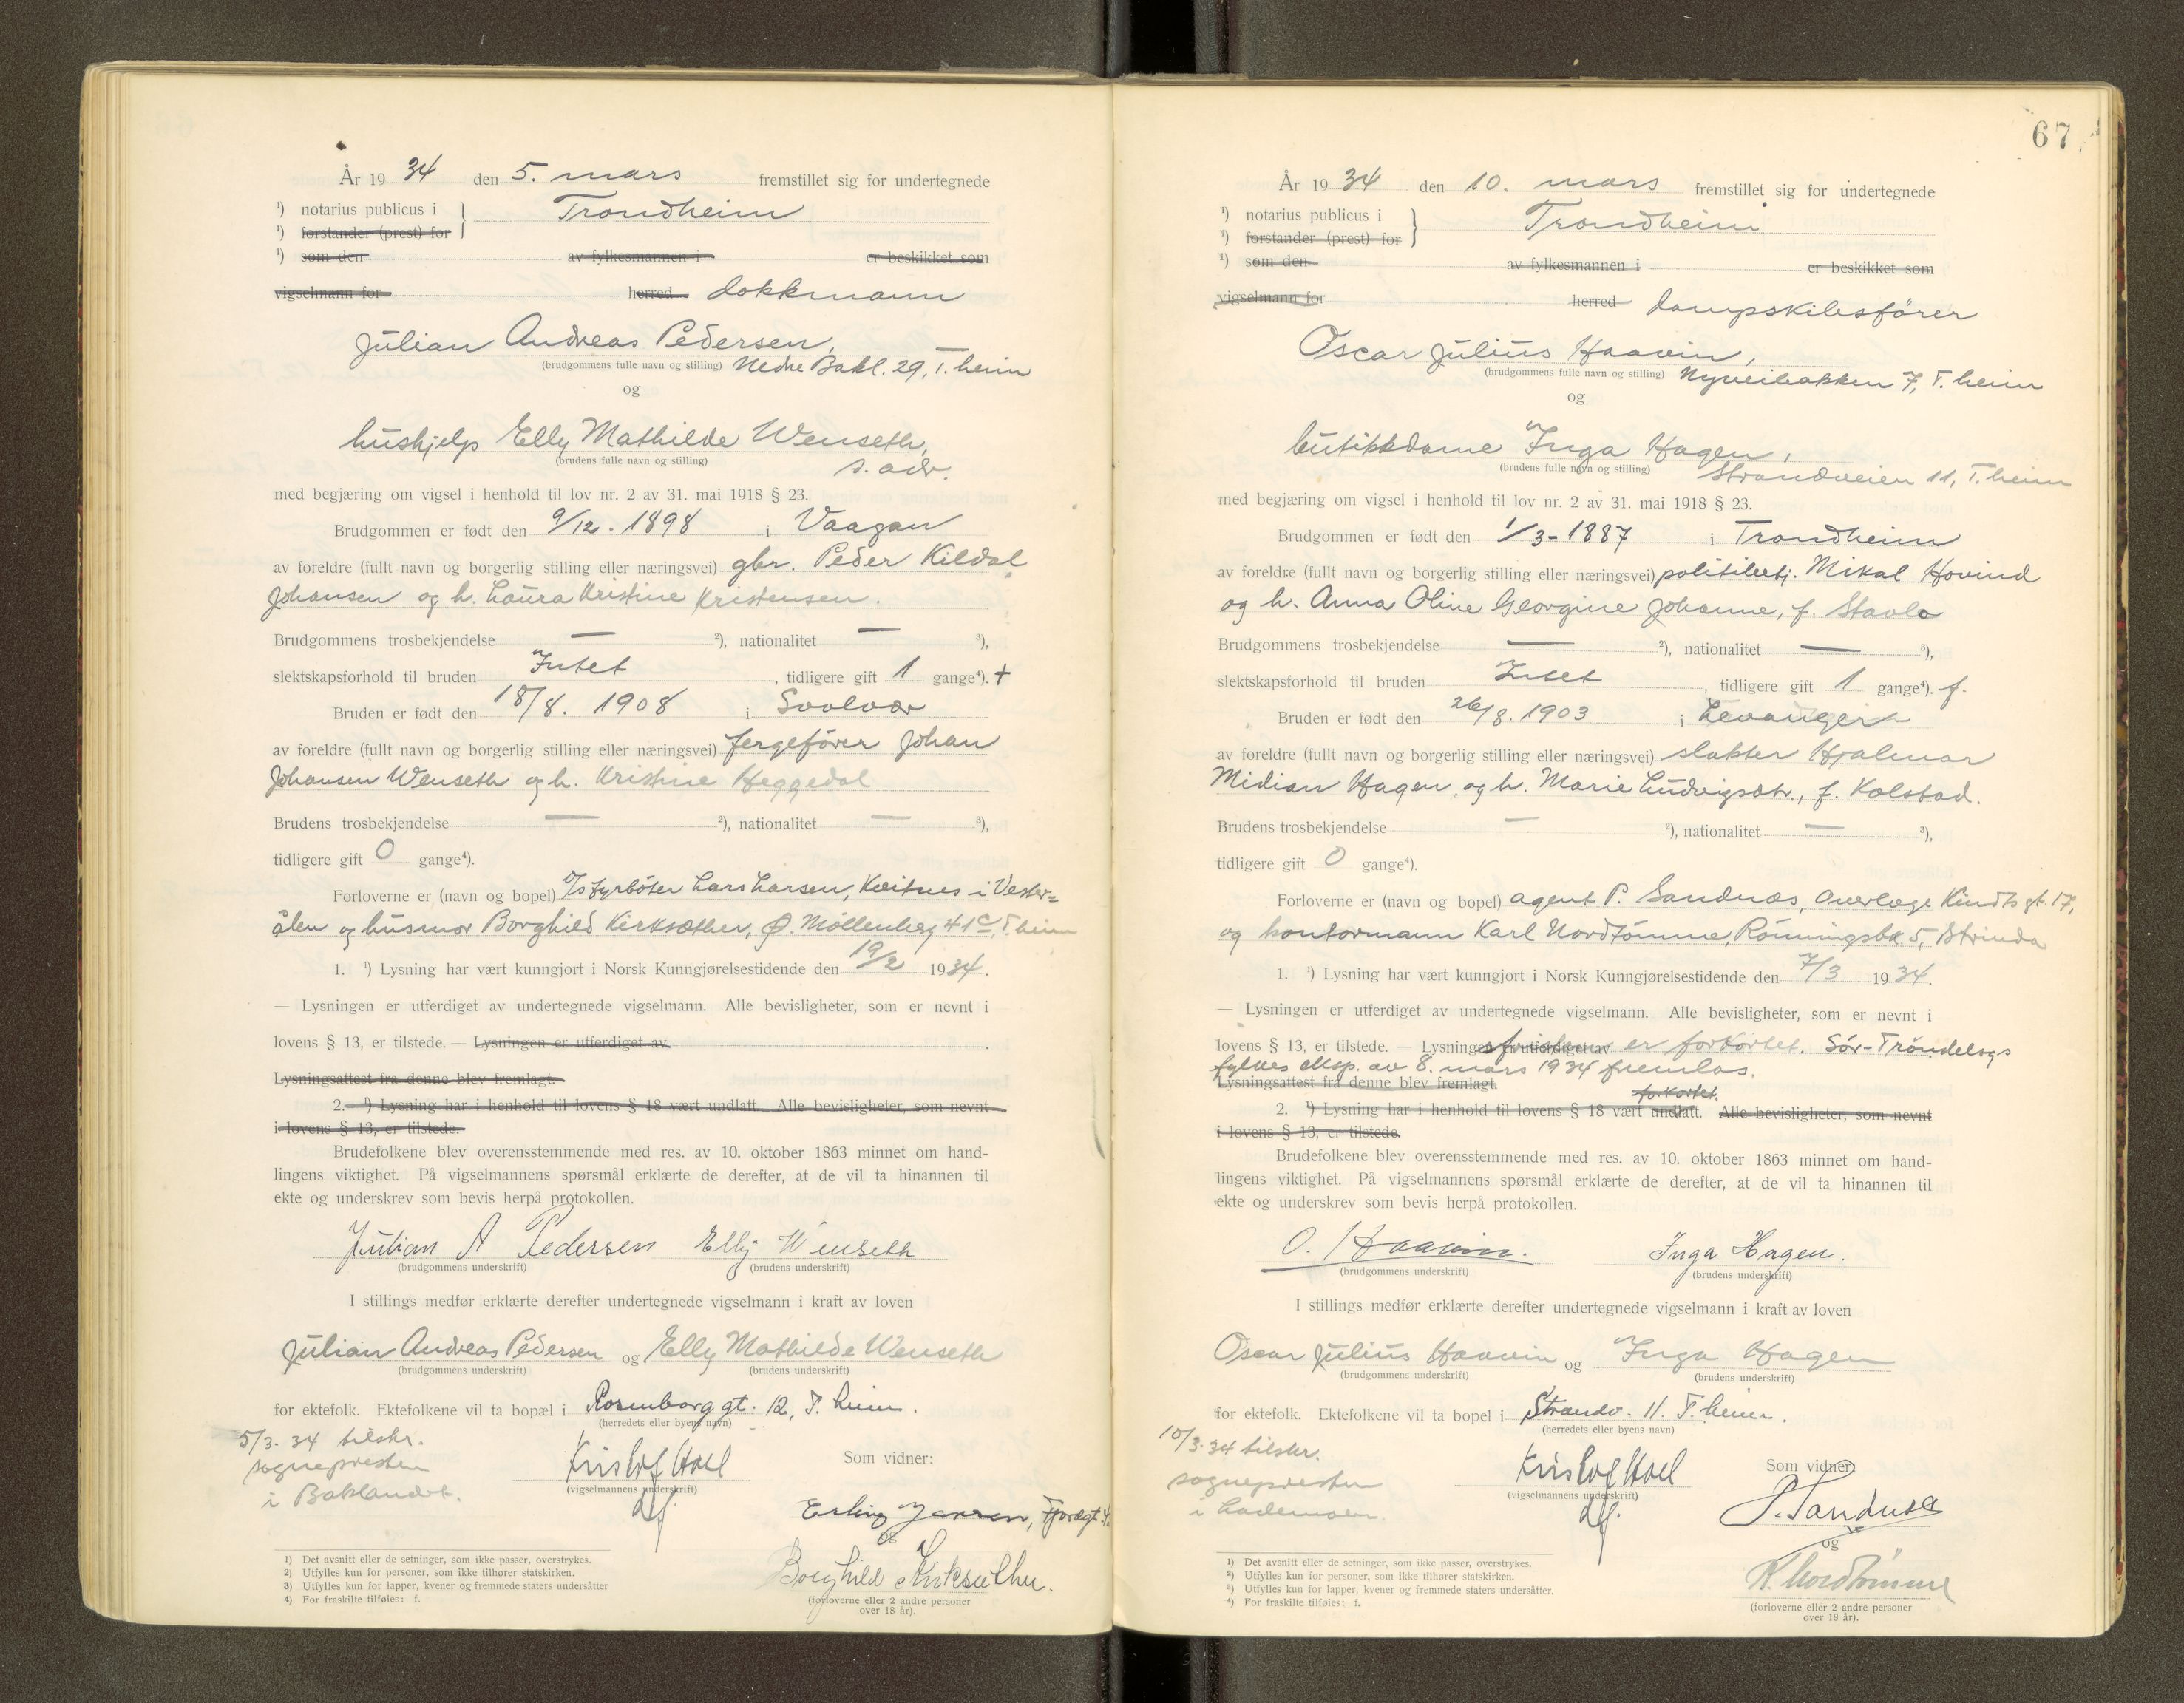 År 19 34 den 5. mars fremstillet sig for undertegnede
¹) notarius publicus i } Trondheim
¹) forstander (prest) for
¹) som den av fylkesmannen i er beskikket som
vigselmann for herred dokkmann
Julian Andreas Pedersen,
(brudgommens fulle navn og stilling) Nedre Bakl. 29, T.heim
og
hushjelp Elly Mathilde Wenseth,
(brudens fulle navn og stilling) s. adr.
med begjæring om vigsel i henhold til lov nr. 2 av 31. mai 1918 § 23.
Brudgommen er født den 9/12. 1898 i Vaagan
av foreldre (fullt navn og borgerlig stilling eller næringsvei) gbr. Peder Kildal
Johansen og h. Laura Kristine Kristensen.
Brudgommens trosbekjendelse — ²), nationalitet — ³),
slektskapsforhold til bruden Intet, tidligere gift 1 gange⁴). +
Bruden er født den 18/8. 1908 i Svolvær
av foreldre (fullt navn og borgerlig stilling eller næringsvei) fergefører Johan
Johansen Wenseth og h. Kristine Heggedal
Brudens trosbekjendelse — ²), nationalitet — ³),
tidligere gift 0 gange⁴).
Forloverne er (navn og bopel) fyrbøter Lars Larsen, Kvitnes i Vester=
ålen og husmor Borghild Kirksæther, Ø. Møllenberg 41c, T.heim
1. ¹) Lysning har vært kunngjort i Norsk Kunngjørelsestidende den 19/2 1934.
— Lysningen er utferdiget av undertegnede vigselmann. Alle bevisligheter, som er nevnt i
lovens § 13, er tilstede. — Lysningen er utferdiget av .
Lysningsattest fra denne blev fremlagt.
2. ¹) Lysning har i henhold til lovens § 18 vært undlatt. Alle bevisligheter, som nevnt
i lovens § 13, er tilstede.
Brudefolkene blev overensstemmende med res. av 10. oktober 1863 minnet om hand-
lingens viktighet. På vigselmannens spørsmål erklærte de derefter, at de vil ta hinannen til
ekte og underskrev som bevis herpå protokollen.
Julian A Pedersen Elly Wenseth
(brudgommens underskrift) (brudens underskrift)
I stillings medfør erklærte derefter undertegnede vigselmann i kraft av loven
Julian Andreas Pedersen og Elly Mathilde Wenseth
(brudgommens underskrift) (brudens underskrift)
for ektefolk. Ektefolkene vil ta bopæl i Rosenborg gt. 12, T.heim.
(herredets eller byens navn)
5/3. 34 tilskr.
sognepresten
i Baklandet.
Kristof Hoel
(vigselmannens underskrift)
df.
Som vidner:
Erling Jensen, Fjordgt.
og
Borghild Kirksæther.
(forloverne eller 2 andre personer
over 18 år).
1) Det avsnitt eller de setninger, som ikke passer, overstrykes.
2) Utfylles kun for personer, som ikke tilhører statskirken.
3) Utfylles kun for lapper, kvener og fremmede staters undersåtter
4) For fraskilte tilføies: f.
67
År 19 34 den 10. mars fremstillet sig for undertegnede
¹) notarius publicus i } Trondheim
¹) forstander (prest) for
¹) som den av fylkesmannen i er beskikket som
vigselmann for herred dampskibsfører
Oscar Julius Haavin,
(brudgommens fulle navn og stilling) Nyveibakken 7, T.heim
og
butikkdame Inga Hagen,
(brudens fulle navn og stilling) Strandveien 11, T.heim
med begjæring om vigsel i henhold til lov nr. 2 av 31. mai 1918 § 23.
Brudgommen er født den 1/3-1887 i Trondheim
av foreldre (fullt navn og borgerlig stilling eller næringsvei) politibetj. Mikal Hovind
og h. Anna Oline Georgine Johanne, f. Stavlo
Brudgommens trosbekjendelse — ²), nationalitet — ³),
slektskapsforhold til bruden Intet, tidligere gift 1 gange⁴). f.
Bruden er født den 26/8. 1903 i Levanger
av foreldre (fullt navn og borgerlig stilling eller næringsvei) slakter Hjalmar
Midian Hagen og h. Marie Ludvigsdtr., f. Kolstad.
Brudens trosbekjendelse — ²), nationalitet — ³),
tidligere gift 0 gange⁴).
Forloverne er (navn og bopel) agent P. Sandnæs, Overlæge Kindts gt. 17,
og kontormann Karl Nordtømme, Rønningsbk. 5, Strinda
1. ¹) Lysning har vært kunngjort i Norsk Kunngjørelsestidende den 7/3 1934.
— Lysningen er utferdiget av undertegnede vigselmann. Alle bevisligheter, som er nevnt i
lovens § 13, er tilstede. — Lysningsfristen er forkortet. Sør-Trøndelags
fylkes eksp. av 8. mars 1934 fremlas.
Lysningsattest fra denne blev fremlagt.
forkortet.
2. ¹) Lysning har i henhold til lovens § 18 vært undlatt. Alle bevisligheter, som nevnt
i lovens § 13, er tilstede.
Brudefolkene blev overensstemmende med res. av 10. oktober 1863 minnet om hand-
lingens viktighet. På vigselmannens spørsmål erklærte de derefter, at de vil ta hinannen til
ekte og underskrev som bevis herpå protokollen.
O. Haavin. Inga Hagen.
(brudgommens underskrift) (brudens underskrift)
I stillings medfør erklærte derefter undertegnede vigselmann i kraft av loven
Oscar Julius Haavin og Inga Hagen
(brudgommens underskrift) (brudens underskrift)
for ektefolk. Ektefolkene vil ta bopel i Strandv. 11. T.heim.
(herredets eller byens navn)
10/3.34 tilskr.
sognepresten
i Lademoen.
Kristof Hoel
(vigselmannens underskrift)
df.
Som vidner:
P. Sandnæs
og
K. Nordtømme
(forloverne eller 2 andre personer
over 18 år).
¹) Det avsnitt eller de setninger, som ikke passer, overstrykes.
²) Utfylles kun for personer, som ikke tilhører statskirken.
³) Utfylles kun for lapper, kvener og fremmede staters undersåtter.
⁴) For fraskilte tilføies: f.